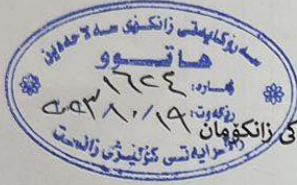 سەرۆکایەتی زانکۆی سەلاحەدین
هاتوو
ژمارە: ١٦٢٤
ڕێکەوت: ٢٠٢٣/١٠/١٩
کی زانکۆمان